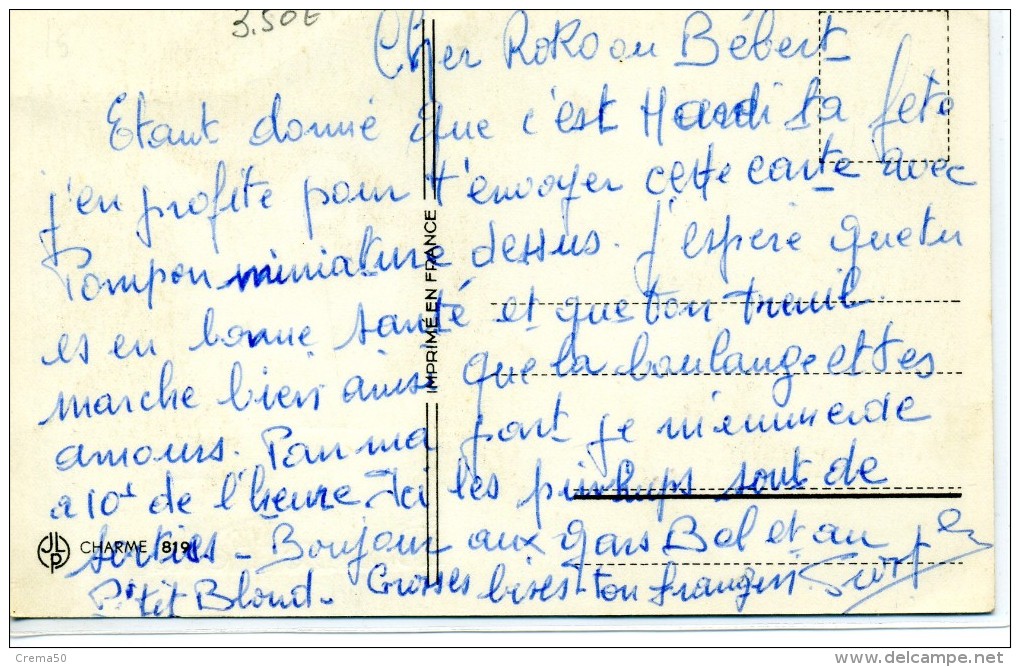 3.50€
Cher Roko ou Bébert
Etant donné que c'est Mardi ta fete
j'en profite pour t'envoyer cette carte avec
Pompon miniature dessus. J'espère que tu
es en bonne santé et que ton treuil
marche bien ainsi que la boulange et tes
amours. Par ma part je m'emmerde
a 10d de l'heure. Ici les pin-hups sont de
sorties - Bonjour aux gars Bel et au
P'tit Blond. Grosses bises ton frangin
IMPRIMÉ EN FRANCE
JLP CHARME 819
Crema50